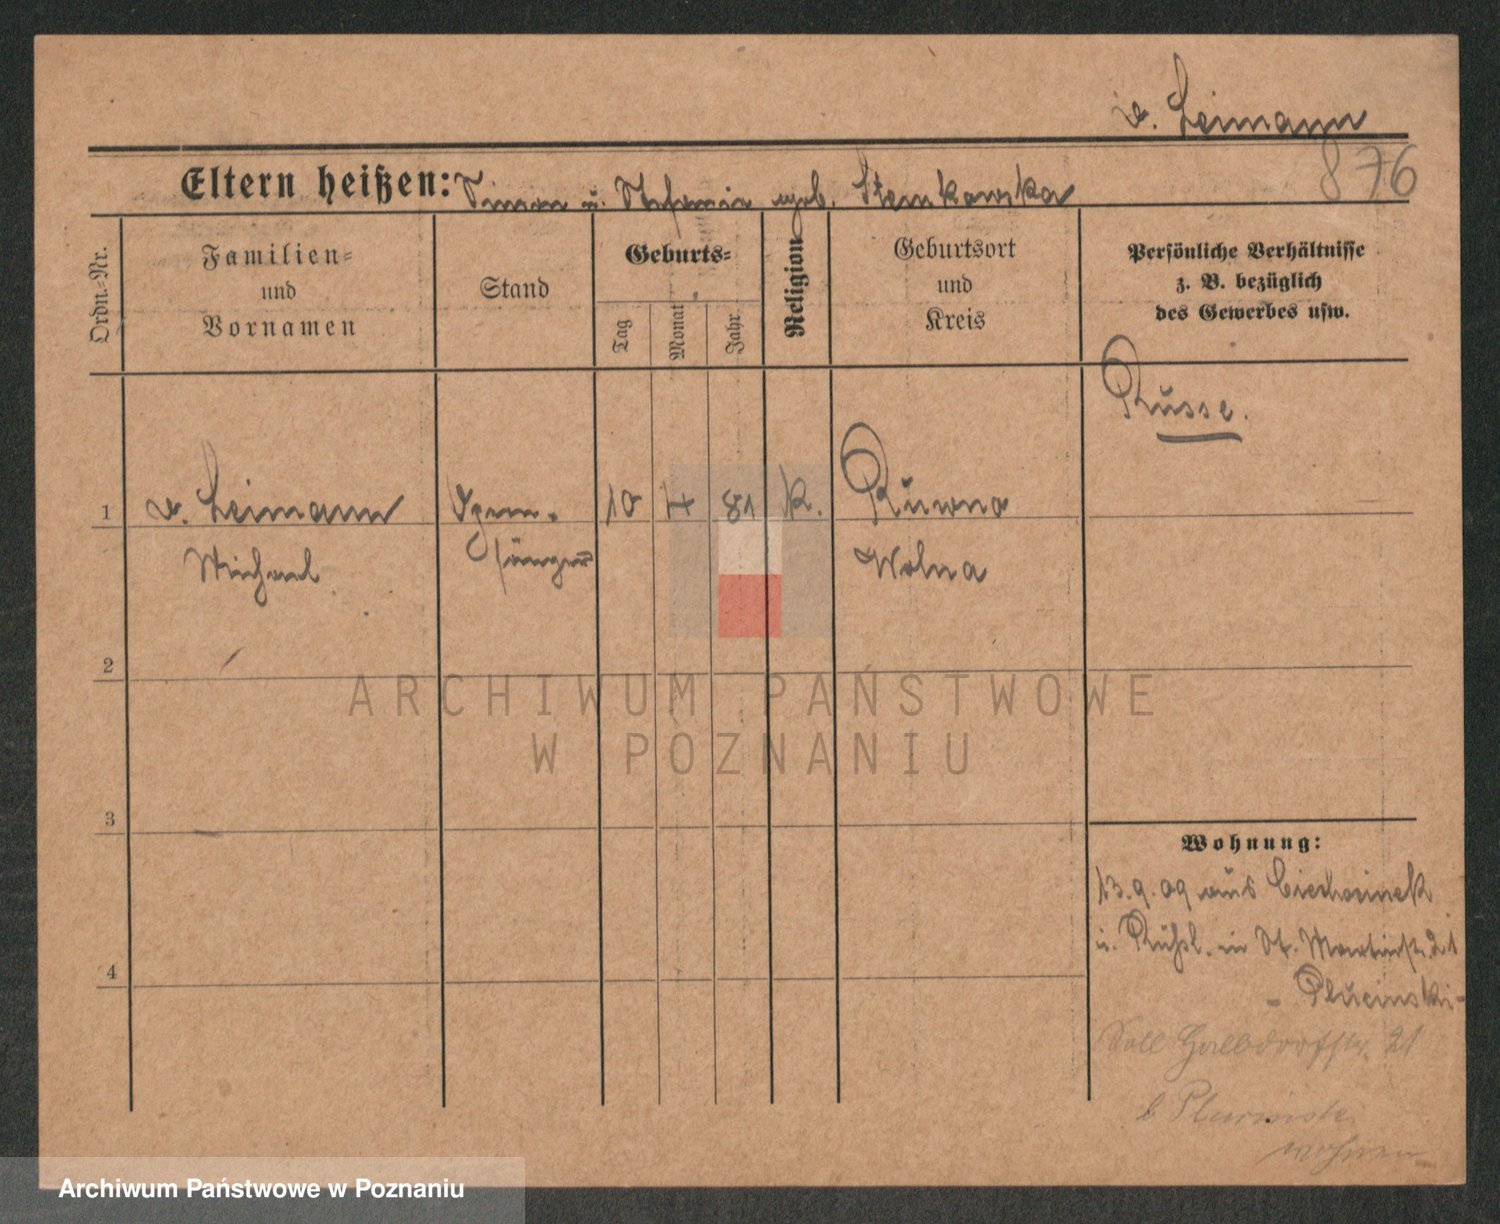 v. Leimann
876
Eltern heißen: Simon u. Stefanie geb. Stemkowska
Ordn.-Nr.
Familien-
und
Vornamen
Stand
Geburts-
Tag
Monat
Jahr
Religion
Geburtsort
und
Kreis
Persönliche Verhältnisse
z. B. bezüglich
des Gewerbes usw.
Russe.
1
v. Leimann
Michael
Opern-
sänger
10
4
81
k.
Ruwno
Wolna
2
3
4
Wohnung:
13.9.09 aus Ciechocinek
u. Rußl. in St. Martinstr. 21
- Plucinski -
Soll Halbdorfstr. 21
b Plucinski
wohnen
ARCHIWUM PAŃSTWOWE
W POZNANIU
Archiwum Państwowe w Poznaniu